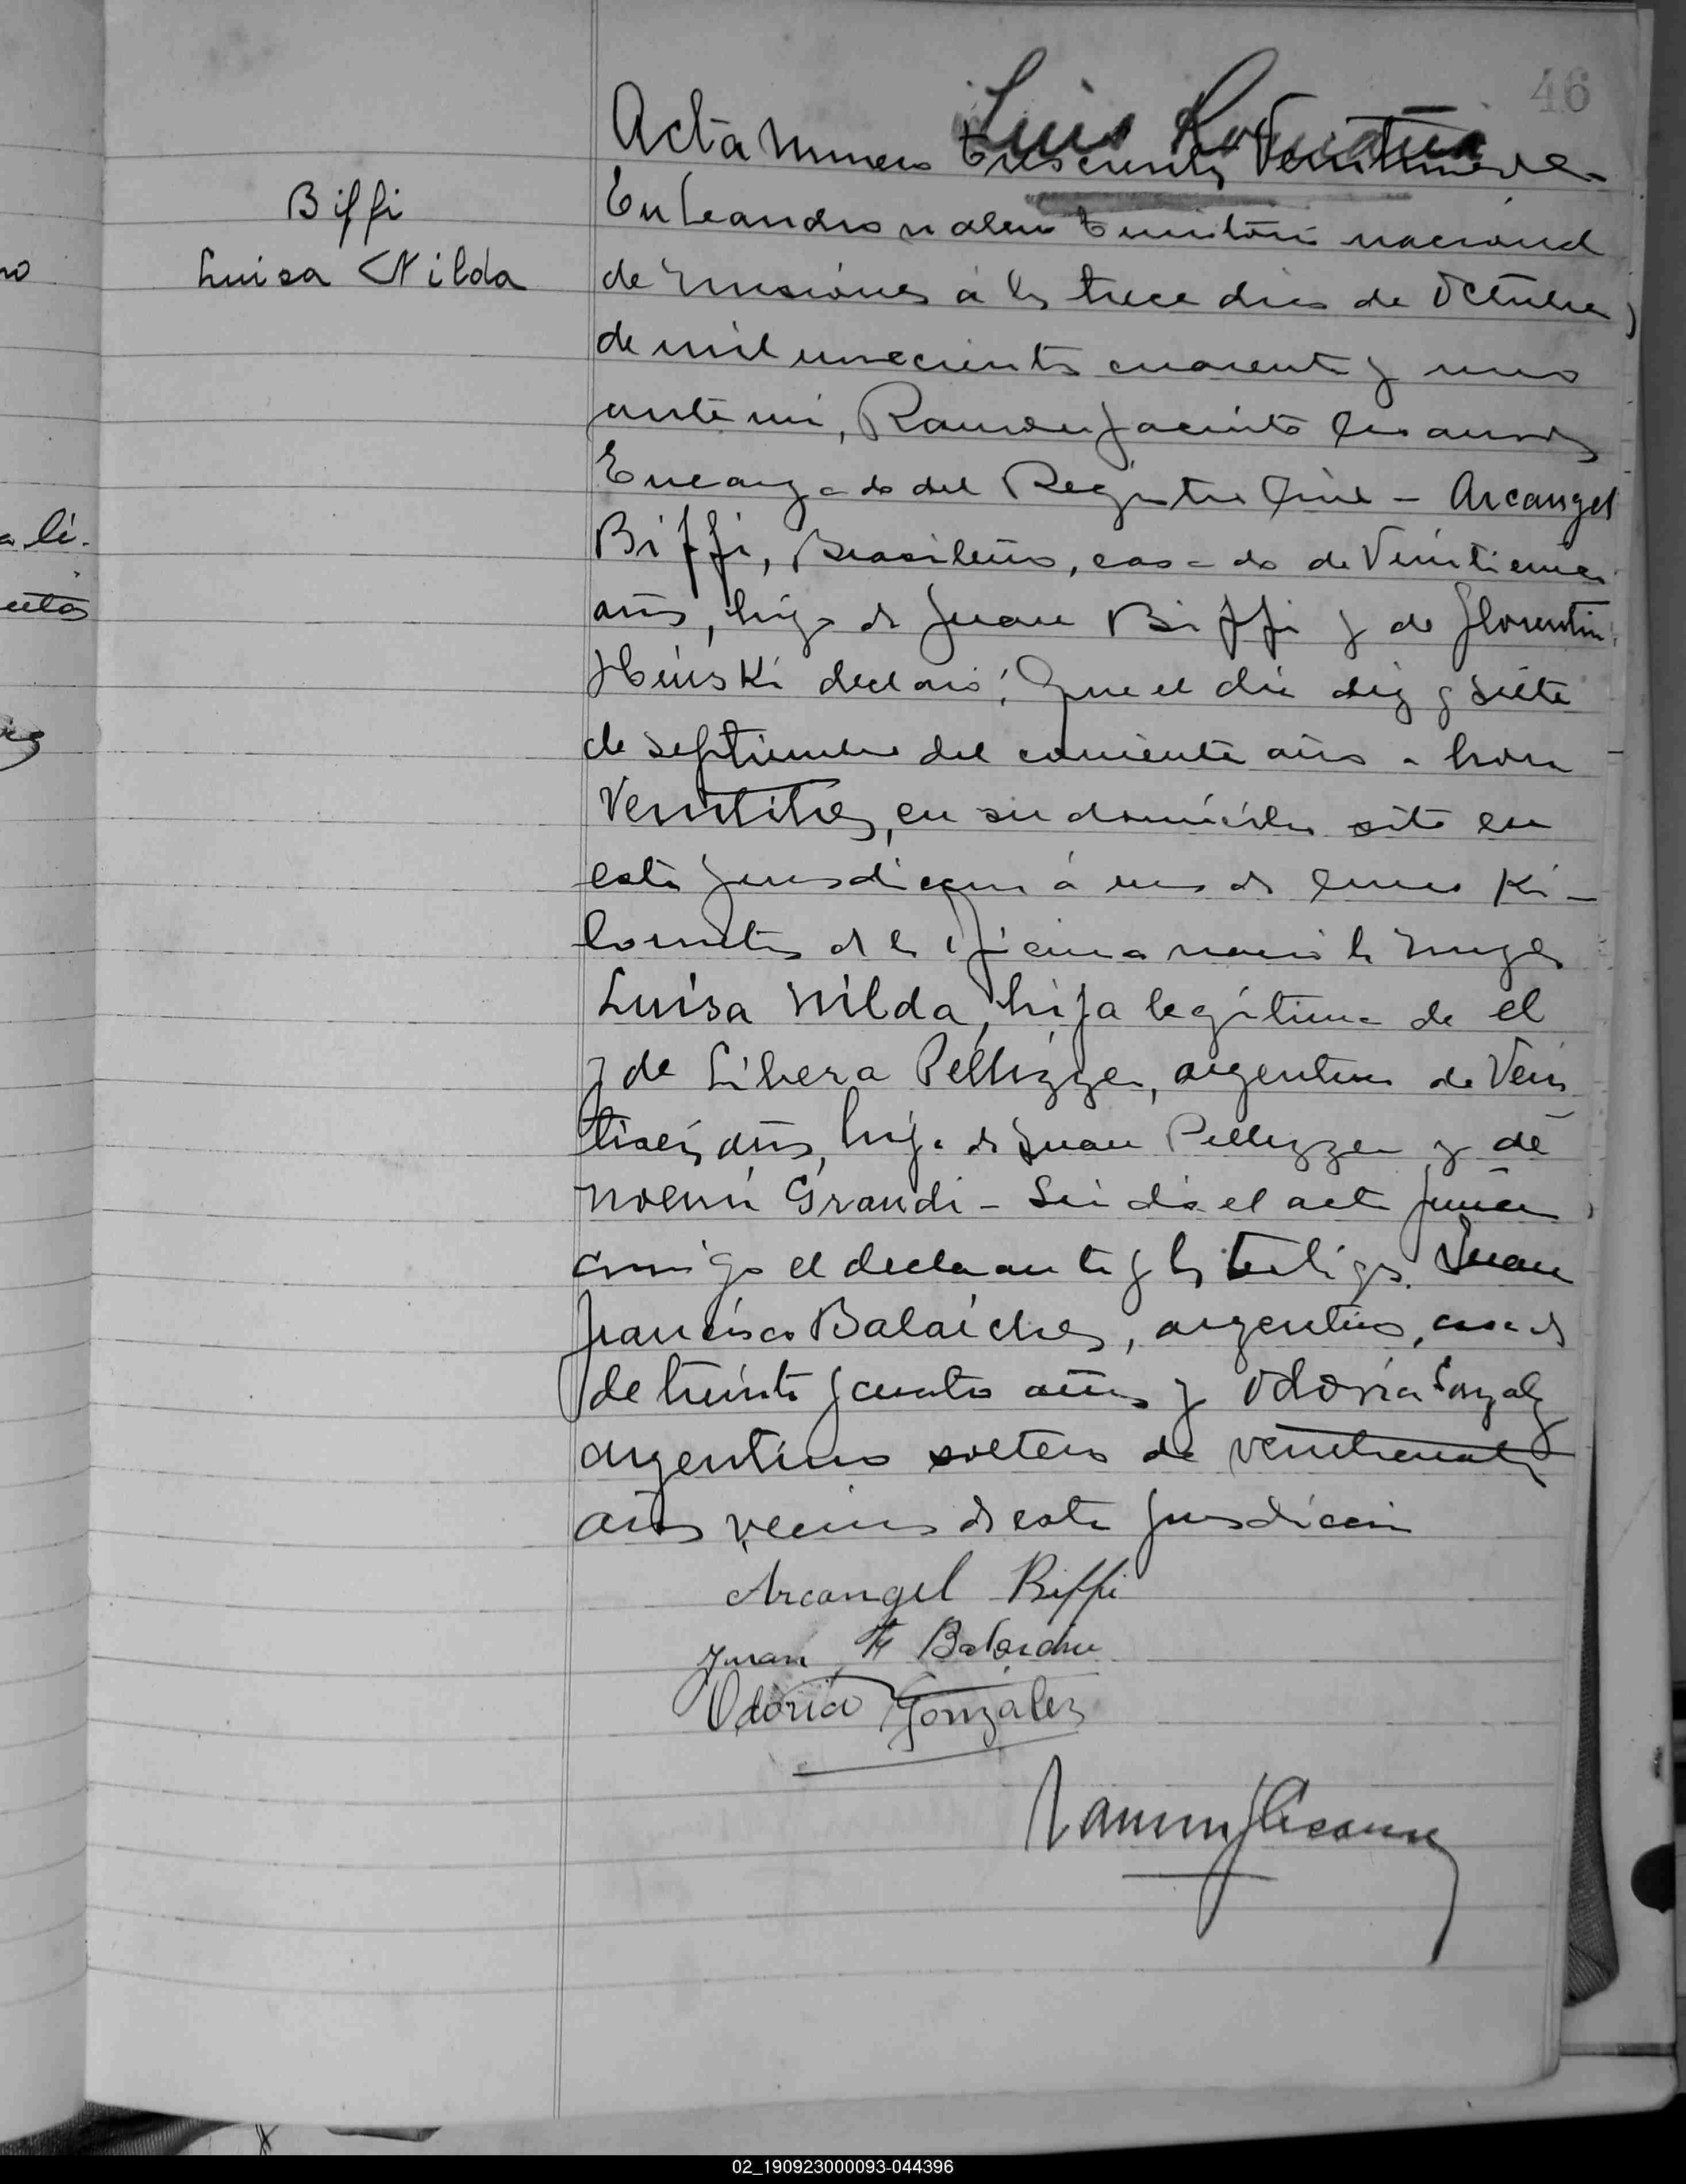 46
Luis
Acta Numero trescientos Veintinueve
Biffi
Luisa Nilda
En Leandro N Alem territorio nacional
de Misiones á los trece dias de Octubre
de mil novecientos cuarenta y uno
ante mi, Ramon Jacinto
Encargado del Registro Civil – Arcangel
Biffi, Brasileño, casado de
años, hijo de Juan Biffi y de Florentin
declaró: Que el dia diez y siete
de septiembre del corriente año a hora
Veintitres, en su domicilio sito en
esta jurisdiccion á unos Ki–
lometros de la oficina nació la mujer
Luisa Nilda, hija legitima de el
y de Libera Pellizzer, argentina de Vein
tiseis años, hija de Juan Pellizzer y de
Noemi Grandi – Leida el acta firman
conmigo el declarante y los testigos. Juan
Francisco Balaiches, argentino, casado
de treinta y cuatro años y Odoria Gonzalez
argentino soltero de veinticuatro
años vecinos de esta jurisdiccion
Arcangel Biffi
Juan F
Odorico Gonzalez
Ramon J
02_190923000093-044396